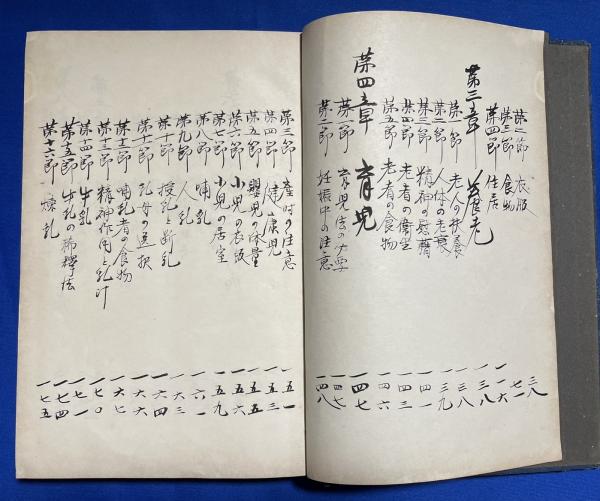 第二節 衣服 三八
第三節 食物 七一
第四節 住居 一一六
第三章 養老 一三八
第一節 老人の扶養 一三八
第二節 人体の老衰 一三九
第三節 精神の慰藉 一四一
第四節 老者の衛生 一四三
第五節 老者の食物 一四六
第四章 育児 一四七
第一節 育児法の必要 一四七
第二節 妊娠中の注意 一四八
第三節 産時の注意 一五一
第四節 健康児 一五三
第五節 嬰児の体量 一五五
第六節 小児の衣服 一五六
第七節 小児の居室 一五九
第八節 哺乳 一六一
第九節 人乳 一六三
第十節 授乳と断乳 一六四
第十一節 乳母の選択 一六六
第十二節 哺乳者の食物 一六七
第十三節 精神作用と乳汁 一七〇
第十四節 牛乳 一七一
第十五節 牛乳の稀釋法 一七四
第十六節 煉乳 一七五